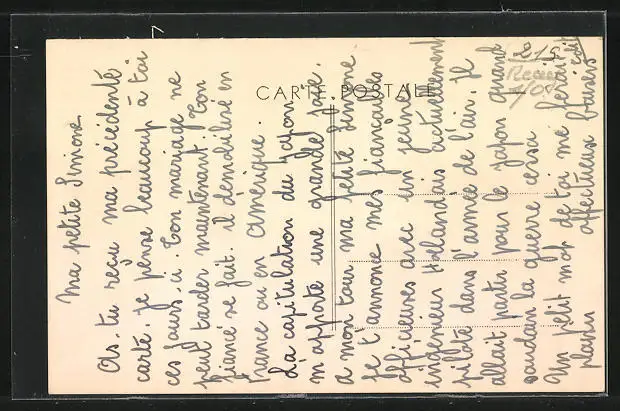 CARTE POSTALE
Ma petite Simone
As-tu reçu ma précédente
carte. Je pense beaucoup à toi
ces jours-ci. Ton mariage ne
peut tarder maintenant. Ton
fiancé se fait-il démobilisé en
France ou en Amérique.
La capitulation du Japon
m'apporte une grande joie.
à mon tour ma petite Simone
Je t'annonce mes fiançailles
officieuses avec un jeune
ingénieur Hollandais actuellement
pilote dans l'armée de l'air. Je
allait partir pour le Japon quand
soudain la guerre cessa
Un petit mot de toi me ferait
plaisir affectueux baisers